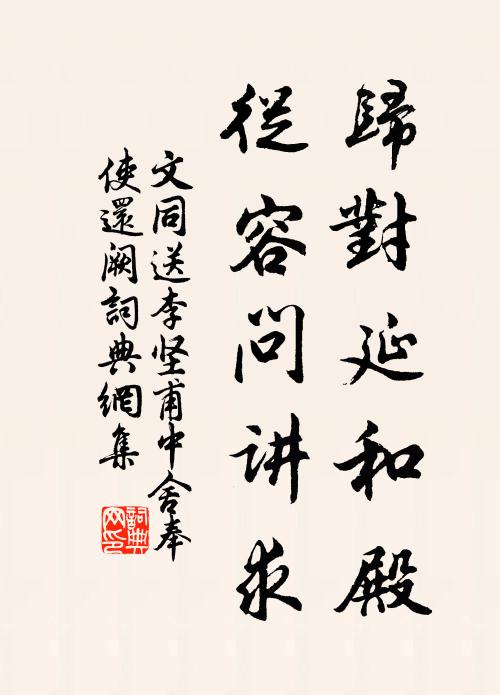 歸對延和殿
從容問讲求
文同送李坚甫中舍奉
使還阙詞典網集
詞典網印